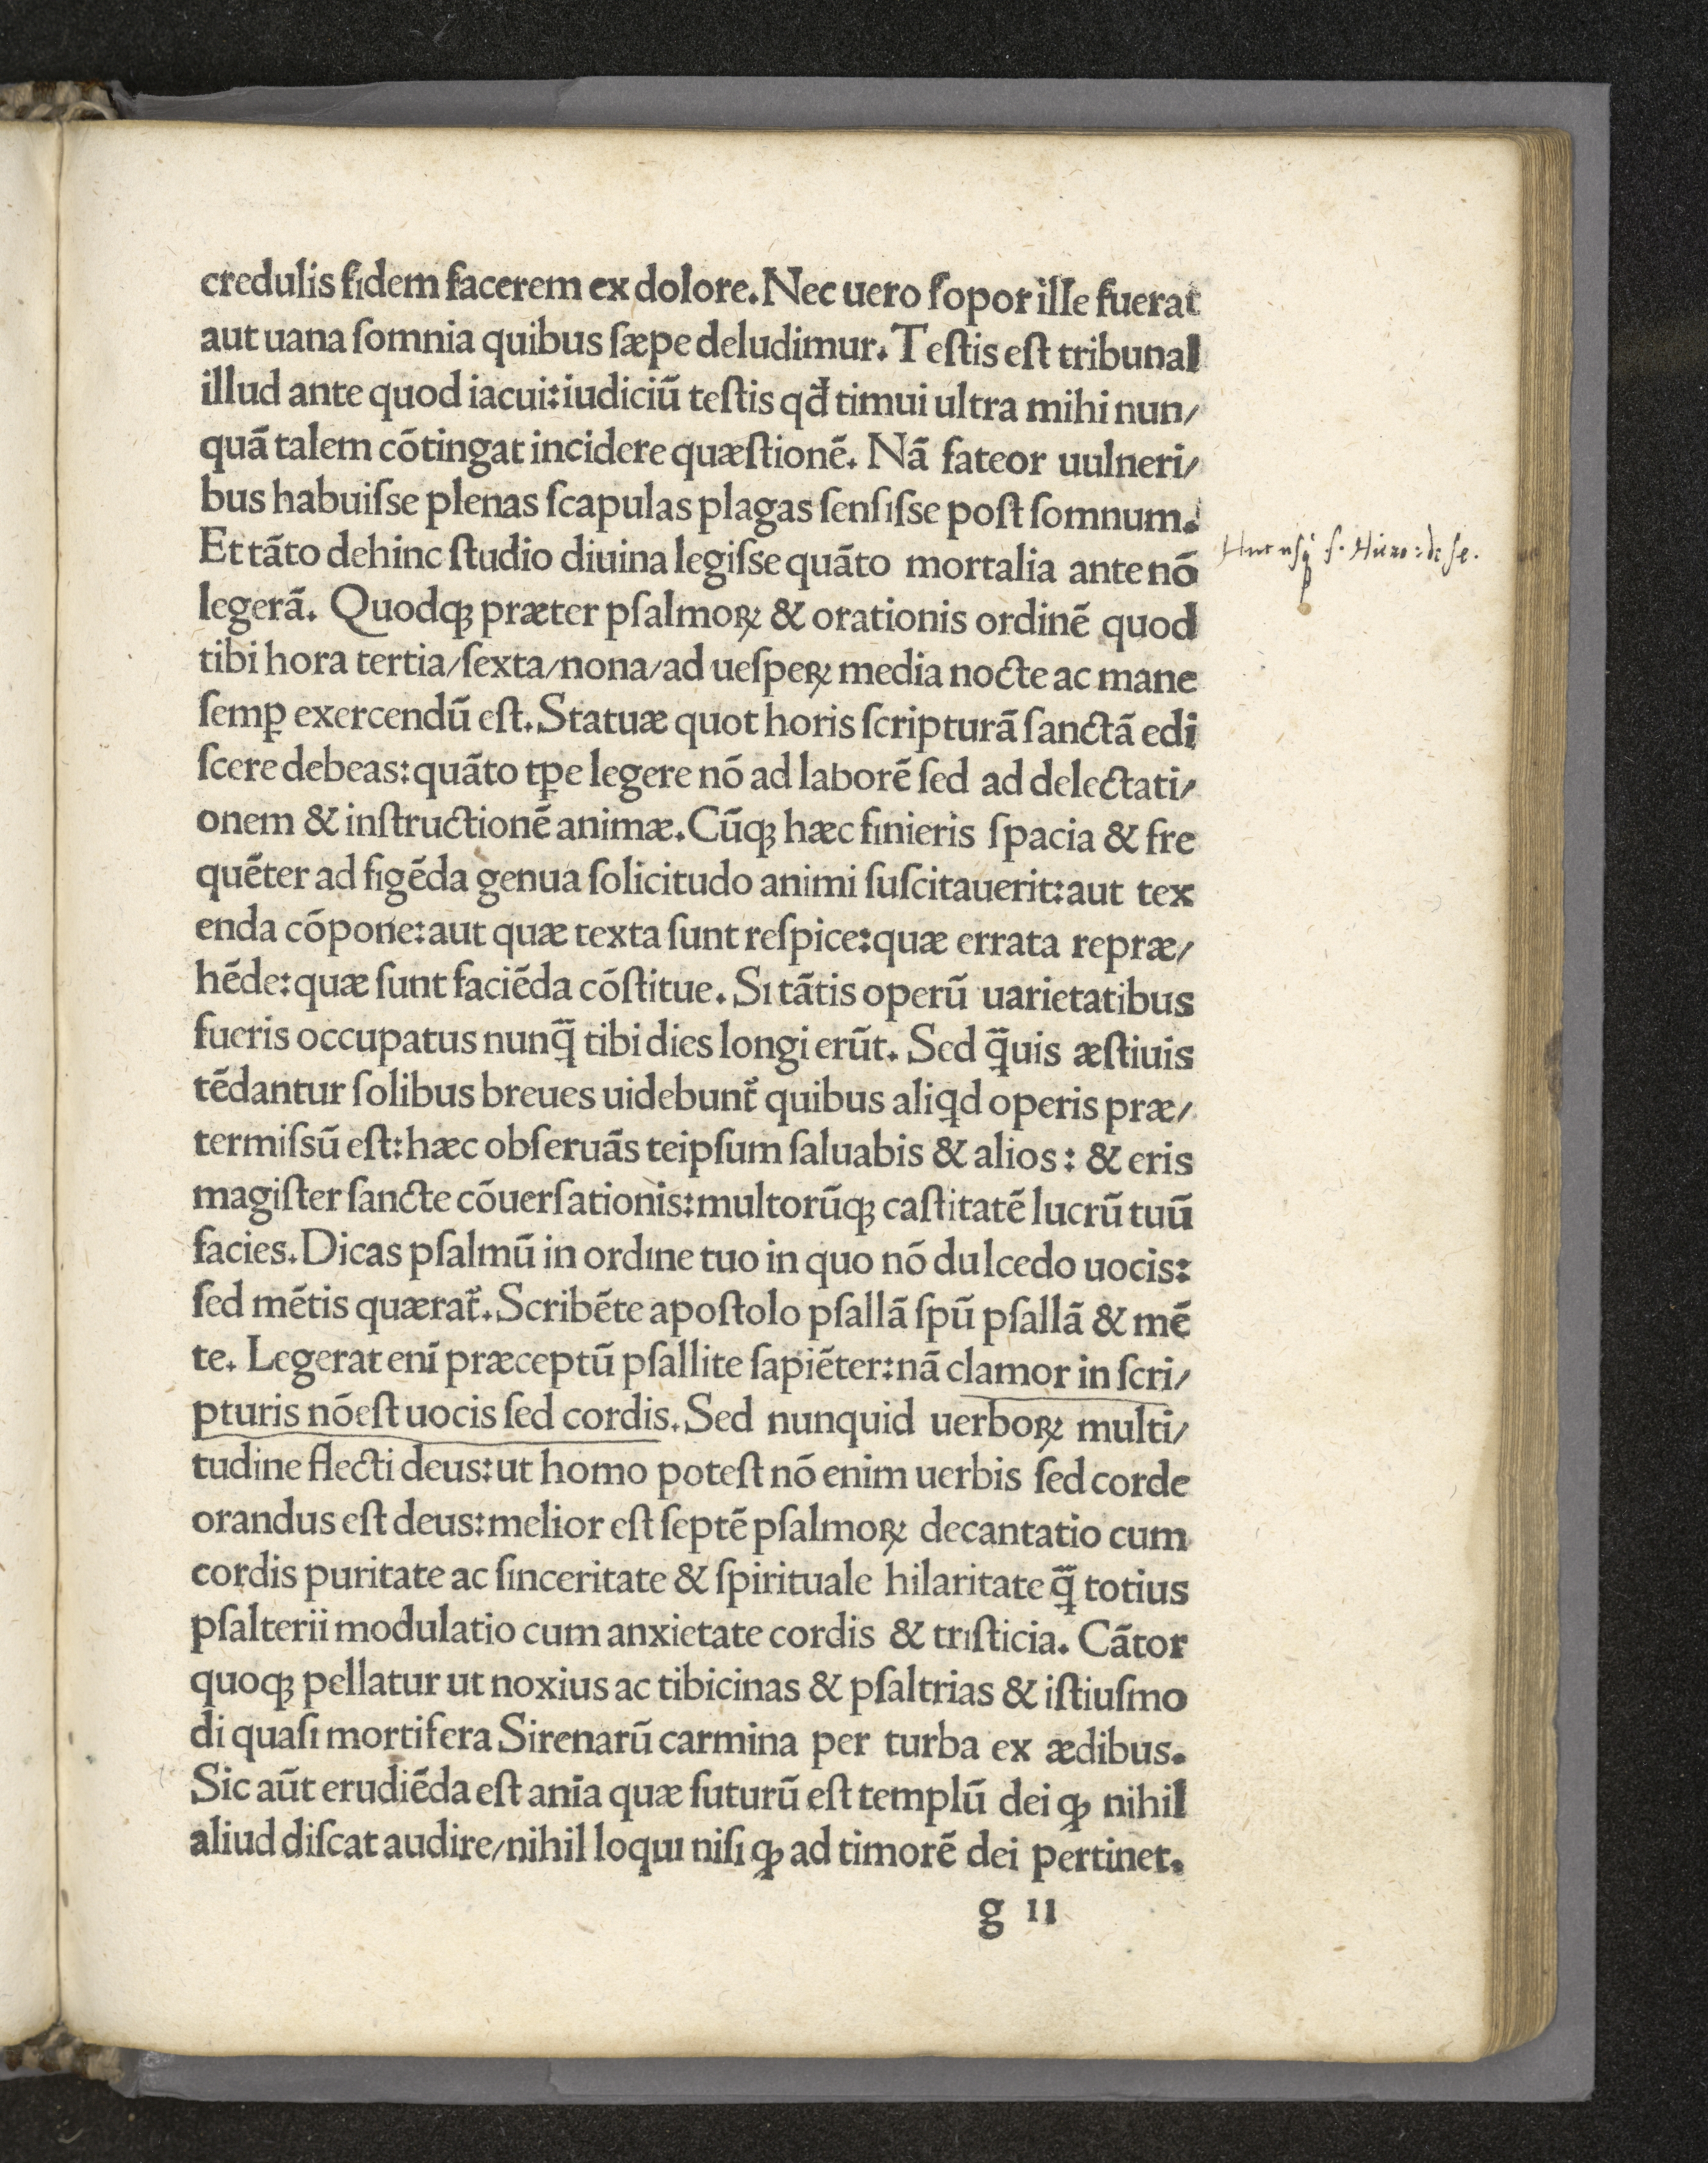 credulis fidem facerem ex dolore. Nec uero ſopor ille fuerat
aut uana ſomnia quibus ſæpe deludimur. Teſtis eſt tribunal
illud ante quod iacui: iudiciũ teſtis qđ timui ultra mihi nun/
quã talem cõtingat incidere quæſtionẽ. Nã fateor uulneri/
bus habuiſse plenas ſcapulas plagas ſenſiſse poſt ſomnum.
Et tãto dehinc ſtudio diuina legiſse quãto mortalia ante nõ
Huc usq; s. Hiero: de se.
legerã. Quodqꝫ præter pſalmoꝝ & orationis ordinẽ quod
tibi hora tertia/ſexta/nona/ad ueſpeꝝ media nocte ac mane
ſemꝑ exercendũ eſt. Statuæ quot horis ſcripturã ſanctã edi
ſcere debeas: quãto tꝑe legere nõ ad laborẽ ſed ad delectati/
onem & inſtructionẽ animæ. Cũqꝫ hæc finieris ſpacia & fre
quẽter ad figẽda genua ſolicitudo animi ſuſcitauerit: aut tex
enda cõpone: aut quæ texta ſunt reſpice: quæ errata repræ/
hẽde: quæ ſunt faciẽda cõſtitue. Si tãtis operũ uarietatibus
fueris occupatus nunq̃ tibi dies longi erũt. Sed q̃uis æſtiuis
tẽdantur ſolibus breues uidebunt̃ quibus aliqd operis præ/
termiſsũ eſt: hæc obſeruãs teipſum ſaluabis & alios: & eris
magiſter ſancte cõuerſationis: multorũqꝫ caſtitatẽ lucrũ tuũ
facies. Dicas pſalmũ in ordine tuo in quo nõ dulcedo uocis:
ſed mẽtis quærat̃. Scribẽte apoſtolo pſallã ſpũ pſallã & mẽ
te. Legerat enĩ præceptũ pſallite ſapiẽter: nã clamor in ſcri/
pturis nõ eſt uocis ſed cordis. Sed nunquid uerboꝝ multi/
tudine flecti deus: ut homo poteſt nõ enim uerbis ſed corde
orandus eſt deus: melior eſt ſeptẽ pſalmoꝝ decantatio cum
cordis puritate ac ſinceritate & ſpirituale hilaritate q̃ totius
pſalterii modulatio cum anxietate cordis & triſticia. Cãtor
quoqꝫ pellatur ut noxius ac tibicinas & pſaltrias & iſtiuſmo
di quaſi mortifera Sirenarũ carmina per turba ex ædibus.
Sic aũt erudiẽda eſt anĩa quæ futurũ eſt templũ dei qꝫ nihil
aliud diſcat audire/nihil loqui niſi qꝫ ad timorẽ dei pertinet.
g ii